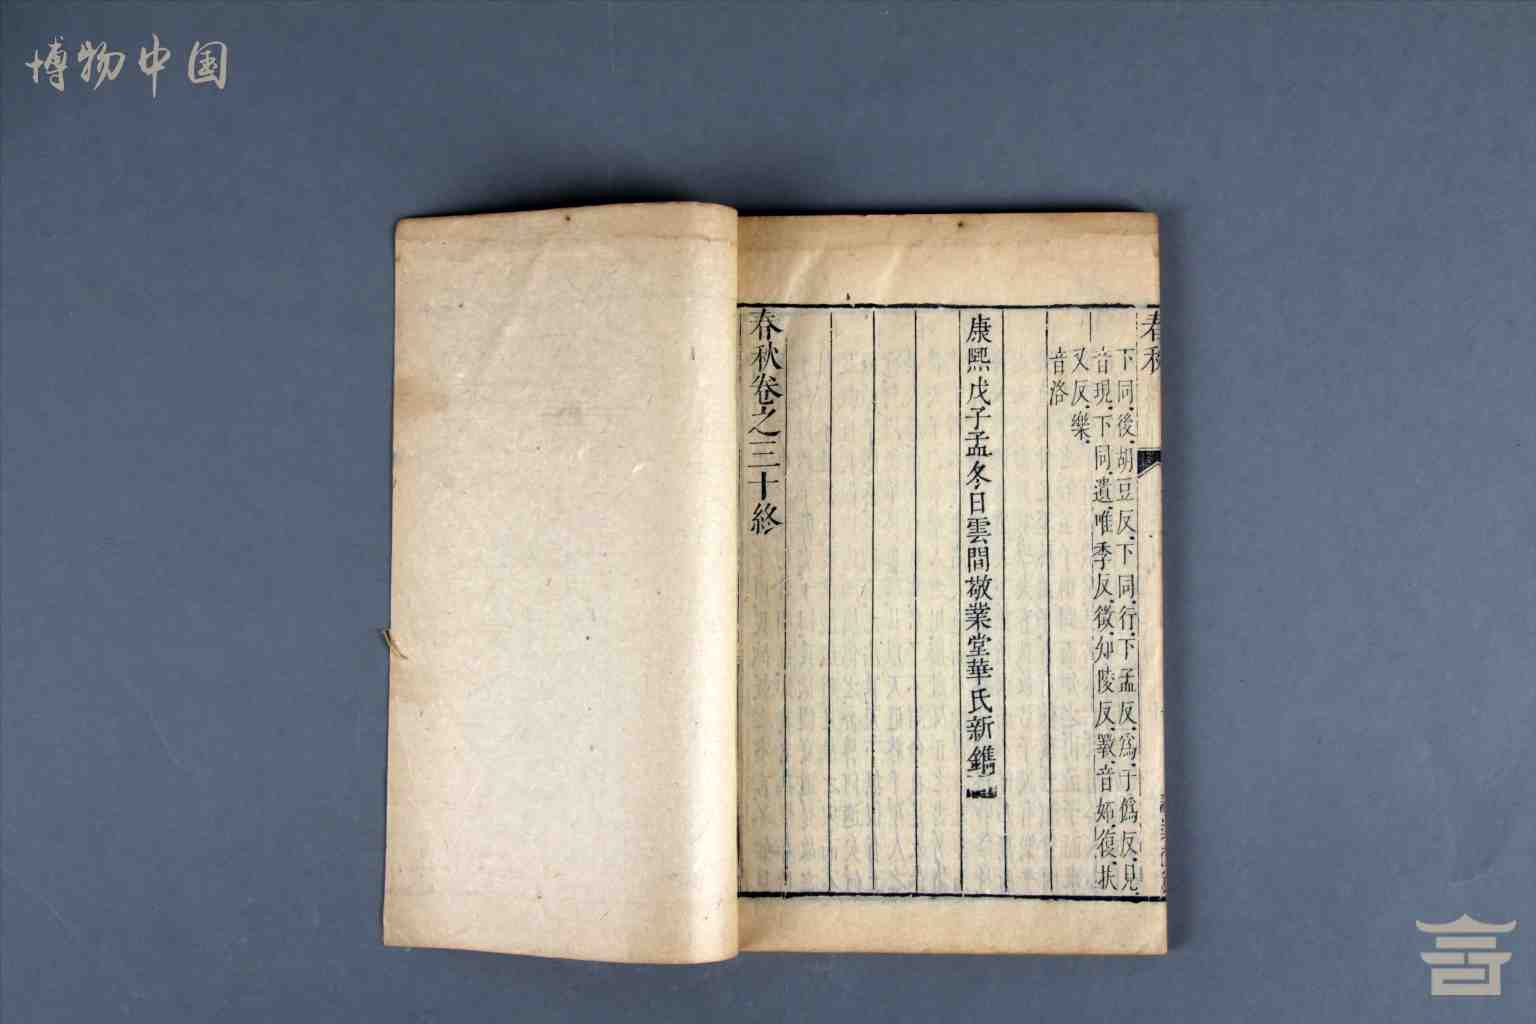 博物中国
春秋
下同後胡豆反下同行下孟反爲于僞反見
音現下同遺唯季反徵知陵反
又反樂
音洛
康熙戊子孟冬日雲間敬業堂華氏新鐫
春秋卷之三十終